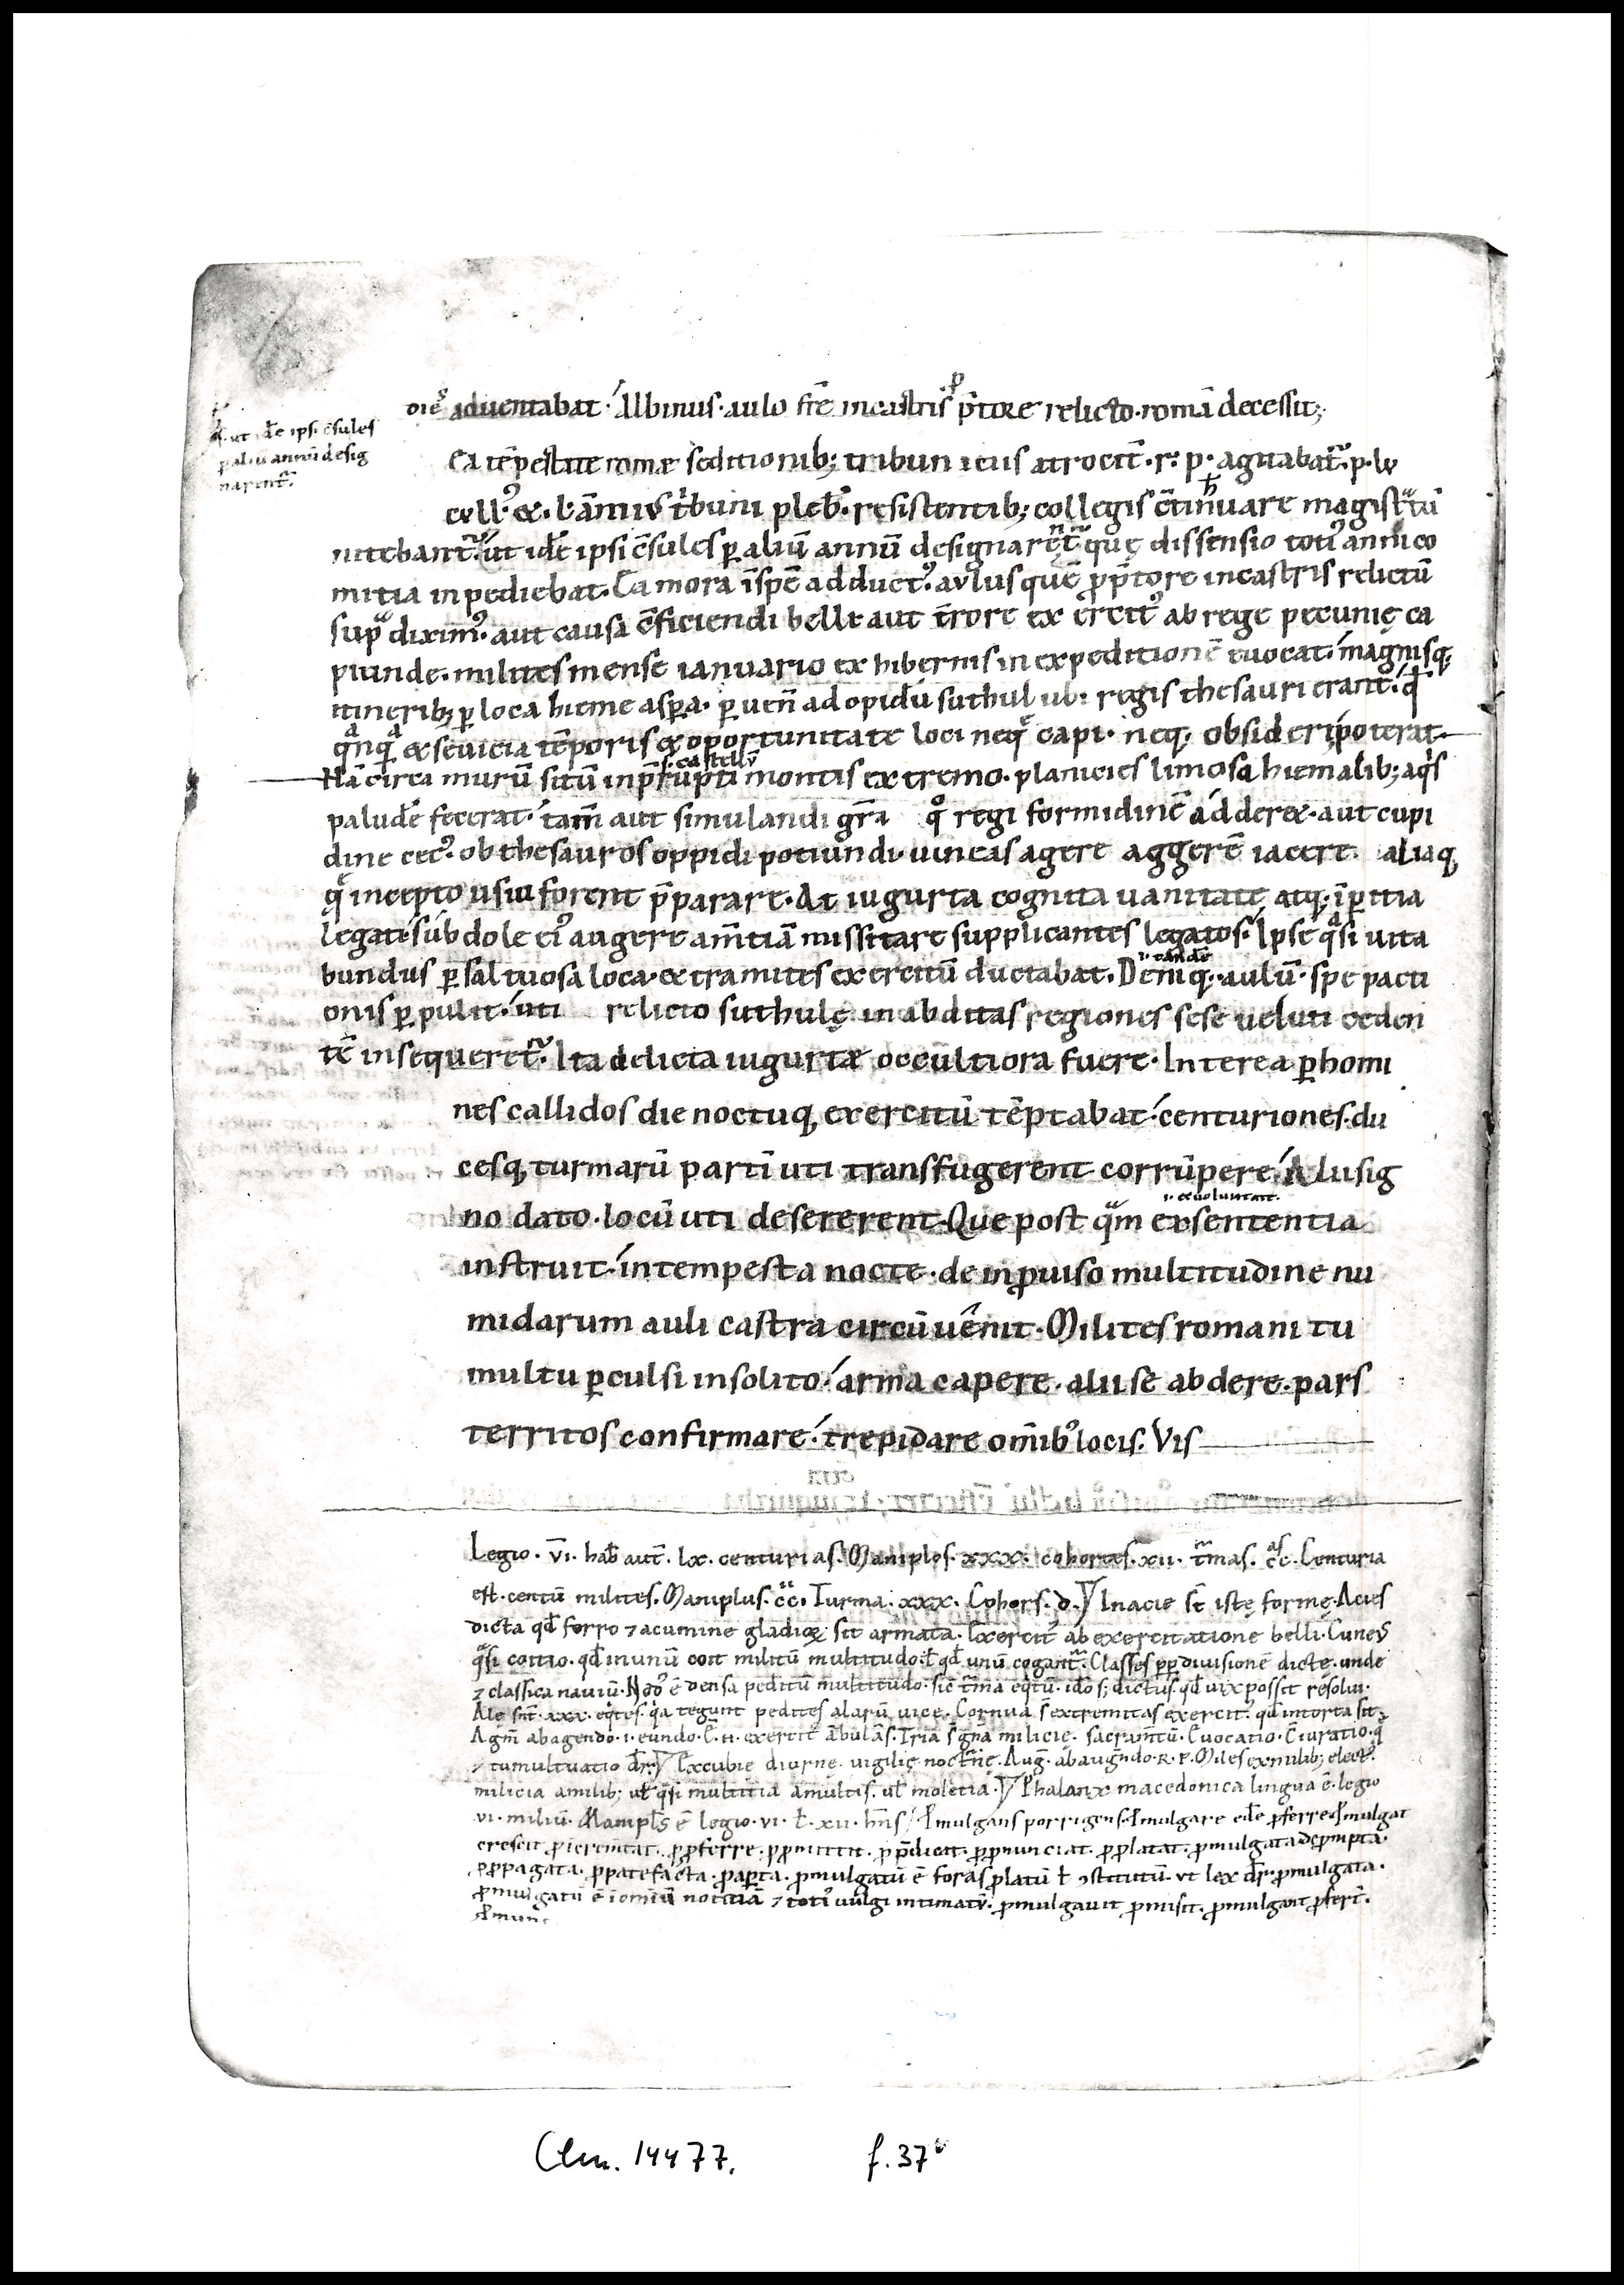 diē aduentabat. Albinus. aulo frē incastris p̄tore relicto. romā decessit;
s. ut idē ipsi c̄sules
p aliū annū desig
narent᷑.
Ea tēpestate romæ seditionib; tribuniciis atrocit̄. r. p. agitabat᷑. p. lu
cull᷒. & . l. āmius t̓buni pleb̓. resistentib; collegis c̄tinuare magist̾tū
nitebant᷑. ut idē ipsi c̄sules p̱ aliū annū designarent᷑ quę dissensio toti᷒ anni co
mitia inpediebat. Ea mora īspē adduct᷒. avlus quē pp̄tore incastris relictū
sup̾ dixim᷒. aut causa c̄ficiendi belli aut t̄rore exercit᷒ ab rege pecunię ca
piunde. milites mense ianuario ex hibernis in expeditionē euocat. magnisq;
itinerib; p̱ loca hieme asp̱a. p̱uen̄ ad opidū suthul ubi regis thesauri erant. q̄
qnq̄ & seuicia tēporis & oportunitate loci neq̄ capi. neq. obsideri poterat.
s. castellū
Nā circa murū sitū inp̄rupti montis extremo. planicies limosa hiemalib; aq̓s
paludē fecerat. tam̄ aut simulandi gr̄a q̊ regi formidinē adder&. aut cupi
dine cec᷒. ob thesauros oppidi potiundi. uineas agere aggerē iacere. aliaq
q̄ incepto usui forent p̄parare. At iugurta cognita uanitate atq. īp̱itia
legati sub dole ei᷒ augere am̄tiā missitare supplicantes legatos. Ipse q̾si uita
i. tandē
bundus p̱ saltuosa loca. & tramites exercitū ductabat. Deniq. aulū. spe pacti
onis p̱pulit. uti relicto suthulę in abditas regiones sese ueluti ceden
tē insequeret᷑. Ita delicta iugurtæ occultiora fuere. Interea p̱ homi
nes callidos die noctuq exercitū tēptabat. centuriones. du
cesq turmarū partī uti transfugerent corrūpere. Alii sig
i. ex uoluntate.
no dato. locū uti desererent. Que post q̾m exsententia
instruit. intempesta nocte. de inꝓuiso multitudine nu
midarum auli castra circūuenit. Milites romani tu
multu p̱culsi insolito. arma capere. alii se abdere. pars
territos confirmare. trepidare omīb᷒ locis. Vis
Legio. vī. hab̄ aut̄. lx. centurias. Maniplos. xxx. cohortes. xii. t̄mas. cc. Centuria
est. centū milites. Maniplus. cc. Turma. xxx. Cohors. d. In acie s̄t istę formę. Acies
dicta qd̄ ferro ⁊ acumine gladioꝝ sit armata. Exercit᷒ ab exercitatione belli. Cune᷒
q̾si coitio. qd̄ inunū coit militū multitudo. ł qd̄ unū cogant᷑. Classes pp̱ diuisionē dictę. unde
⁊ classica nauiū. Nod᷒ ē densa peditū multitudo. sic t̄ma eq̓tū. idos; dictus. qd̄ uix possit resolui.
Ale sn̄t. xxx. eq̓tes. q̓a tegunt pedites alarū uice. Cornua s̄ extremitas exercit᷒. qd̄ intorta sit.
Agm̄ abagendo. i. eundo. c̄. n. exercit᷒ ābulās. Tria s̄ gn̄a milicię. sacram̄tū. Euocatio. C̄iuratio. q̄
⁊ tumultuatio dr̄. Excubię diurnę. uigilię noct̄nę. Aug᷒. abaugn̄do. R. P. Miles exmilib; elect᷒.
milicia amilib; ut̄ q̾si multitia amultis. ut̄ moletia. Phalanx macedonica lingua ē. legio
vi. miliū. Manipl̄s ē legio. vi. ł. xii. hn̄s Ꝓmulgans porrigens. Ꝓmulgare edē ꝓferre. Ꝓmulgat
crescit ꝓicrem̄tat. ꝓferre. ꝓmittit. p̄dicit. ꝓnunciat. ꝓplatat. ꝓmulgata dep̱mpta.
ꝓpagata. ꝓpatefacta. ꝓap̱ta. ꝓmulgatū ē foras ꝓlatū ł ꝯstitutū. ut lex dr̄. ꝓmulgata.
ꝓmulgatū ē iomniū noticiā ⁊ toti᷒ uulgi intimatū. ꝓmulgauit ꝓmisit. ꝓmulgant ꝓfert̄.
Clm. 14477. f. 37v